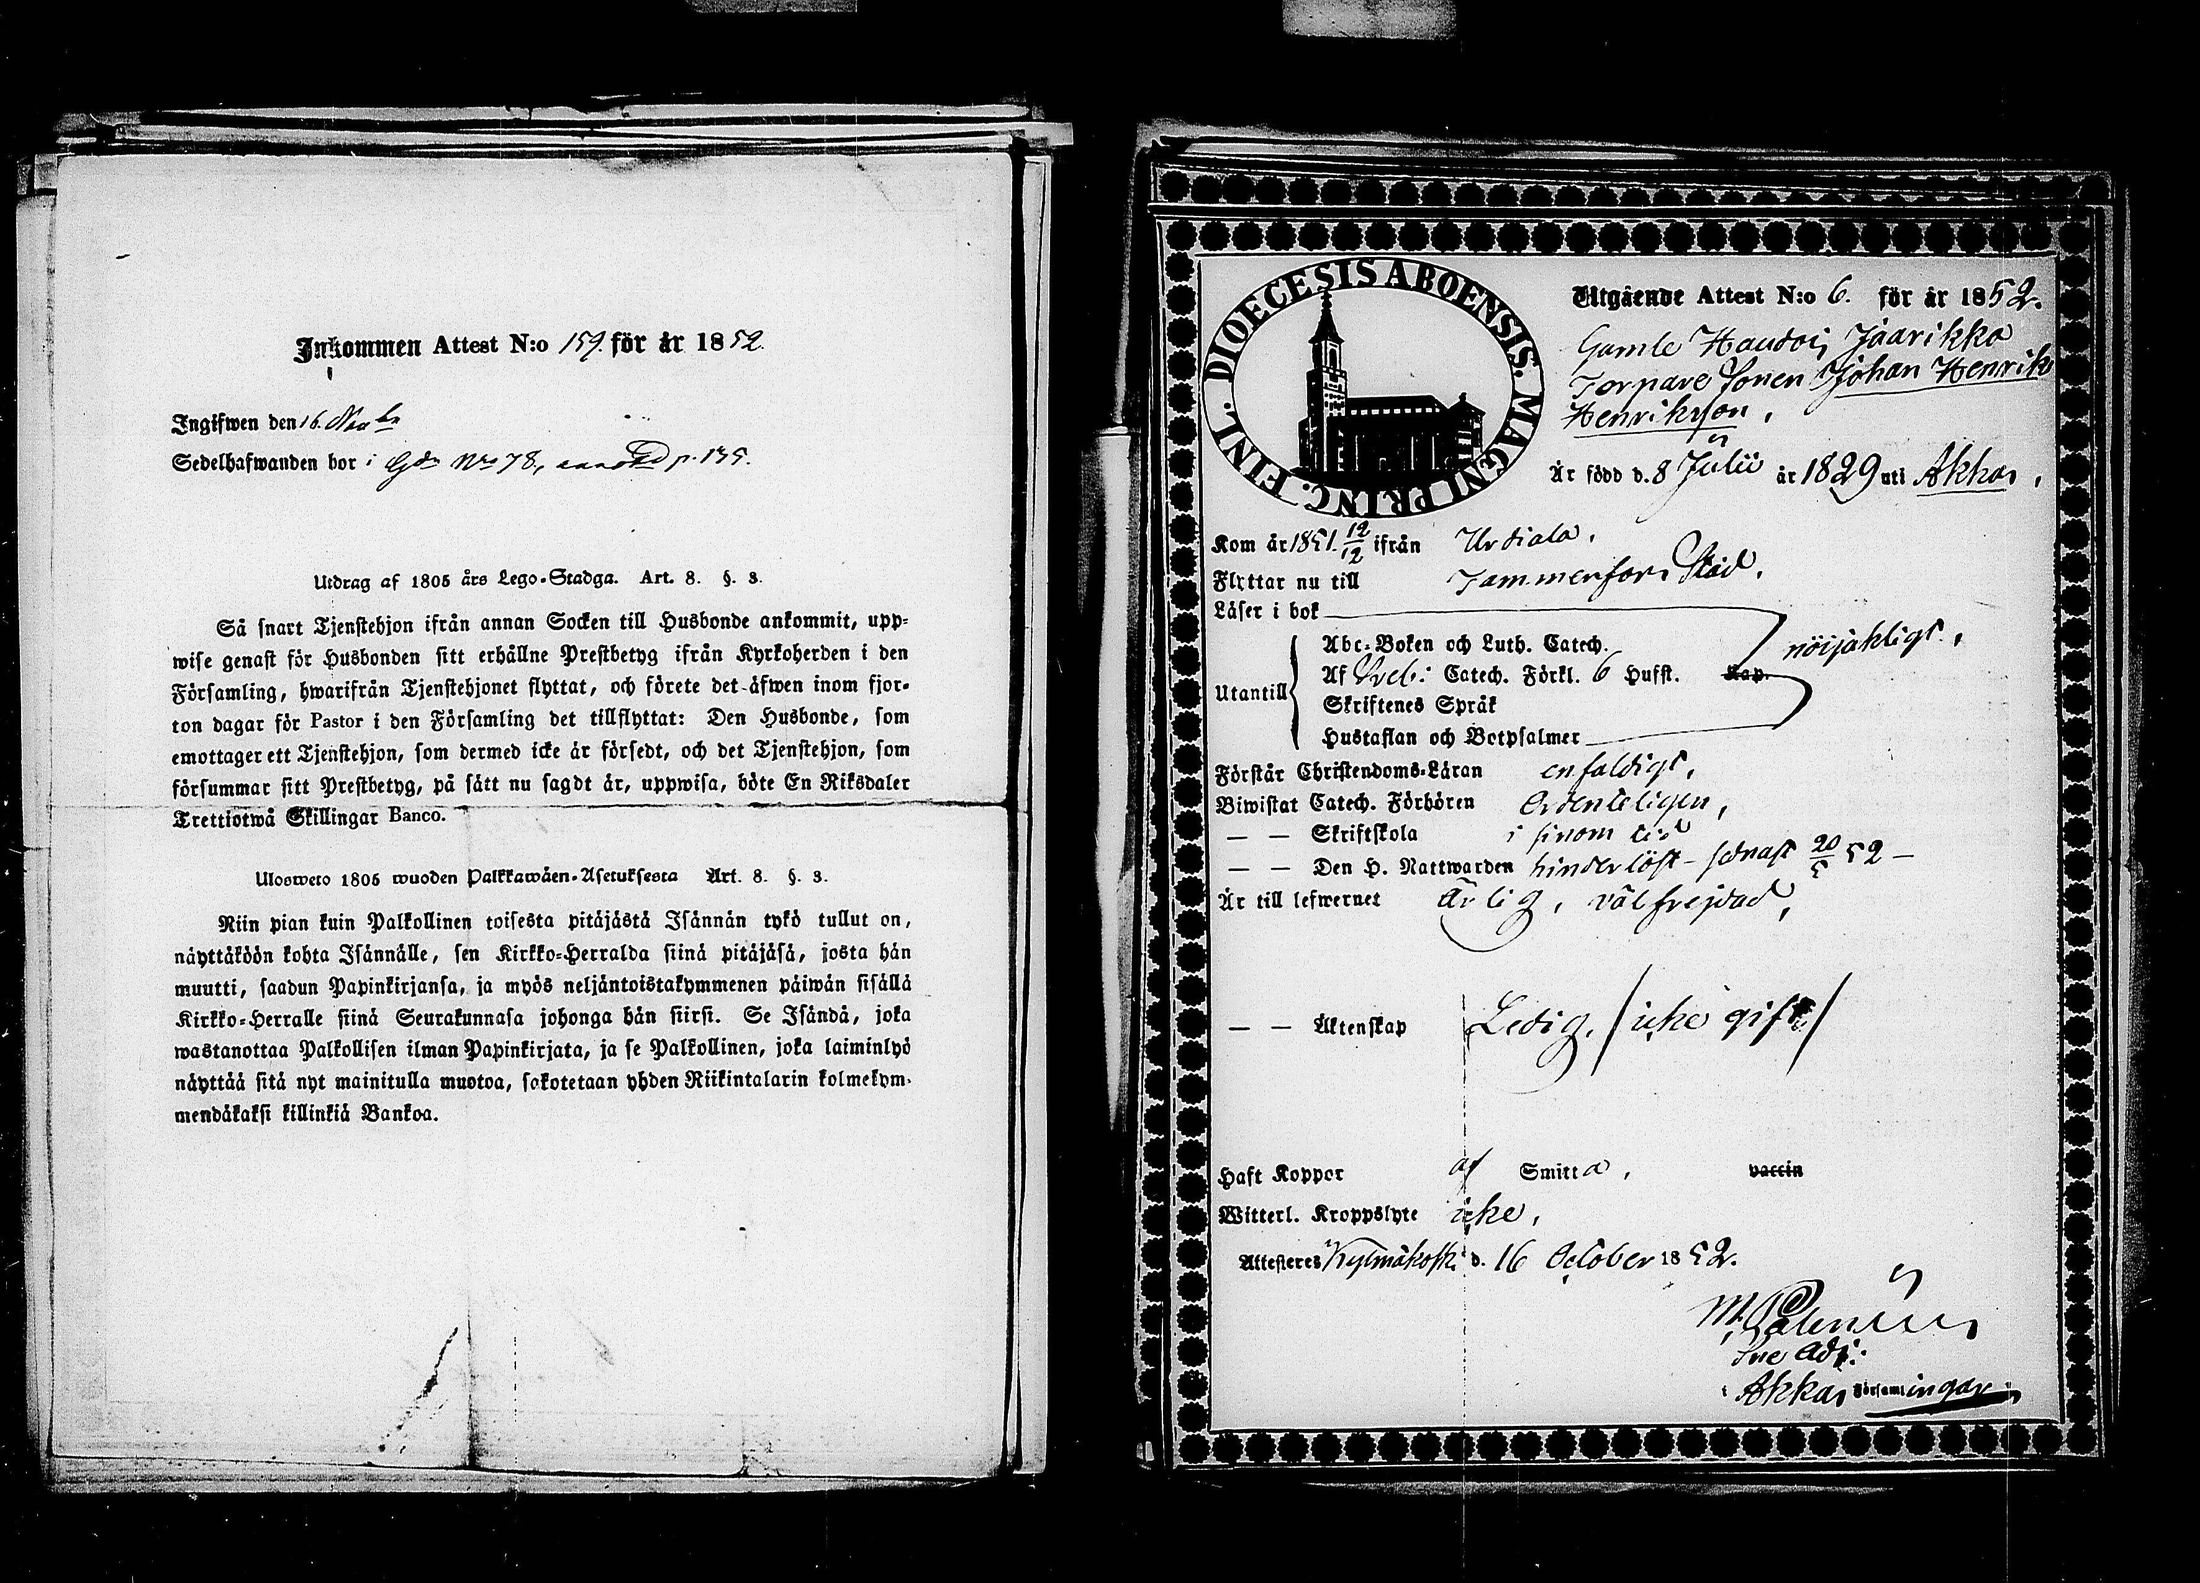 Inkommen Attest N:o 159. för år 1852.
Ingifwen den 16. Novbr
Sedelhafwanden bor i Gdn No 78, p. 135.
Utdrag af 1805 års Lego-Stadga. Art. 8. §. 3.
Så snart Tjenstehjon ifrån annan Socken till Husbonde ankommit, upp-
wise genast för Husbonden sitt erhållne Prestbetyg ifrån Kyrkoherden i den
Församling, hwarifrån Tjenstehjonet flyttat, och förete det äfwen inom fjor-
ton dagar för Pastor i den Församling det tillflyttat: Den Husbonde, som
emottager ett Tjenstehjon, som dermed icke är försedt, och det Tjenstehjon, som
försummar sitt Prestbetyg, på sätt nu sagdt är, uppwisa, böte En Riksdaler
Trettiotwå Skillingar Banco.
Ulosweto 1805 wuoden Palkkawäen-Asetuksesta Art. 8. §. 3.
Niin pian kuin Palkollinen toisesta pitäjästä Isännän tykö tullut on,
näyttäköön kohta Isännälle, sen Kirkko-Herralda siinä pitäjäsä, josta hän
muutti, saadun Papinkirjansa, ja myös neljäntoistakymmenen päiwän sisällä
Kirkko-Herralle siinä Seurakunnasa johonga hän siirsi. Se Isändä, joka
wastanottaa Palkollisen ilman Papinkirjata, ja se Palkollinen, joka laiminlyö
näyttää sitä nyt mainitulla muotoa, sakotetaan yhden Riikintalarin kolmekym-
mendäkaksi killinkiä Bankoa.
DIOECESIS ABOENSIS. MAGNI PRINC. FINL.
Utgående Attest N:o 6. för år 1852.
Gamle Haudois Jaarikka
Torpare Sonen Johan Henrik
Henriksson,
Är född d. 8 Julii år 1829 uti Akkas,
Kom år 1851 12/12 ifrån Urdiala,
Flyttar nu till Tammerfors Stad,
Läser i bok
Abc-Boken och Luth. Catech. nöijaktigt,
Utantill Af Sveb: Catech. Förkl. 6 Hufst. Kap.
Skriftenes Språk
Hustaflan och Botpsalmer
Förstår Christendoms-Läran enfaldigt,
Biwistat Catech. Förhören Ordenteligen,
— — Skriftskola i sinom tid
— — Den H. Nattwarden hinderlöst – sednast 20/5 52 –
Är till lefwernet ärlig, välfrejdad,
— — Äktenskap Ledig, /icke gift/
Haft Koppor af Smitta, vaccin
Witterl. Kroppslyte icke,
Attesteres Kylmäkoski d. 16 October 1852.
M. Polenius
Sve Adj:
i Akkas Församlingar